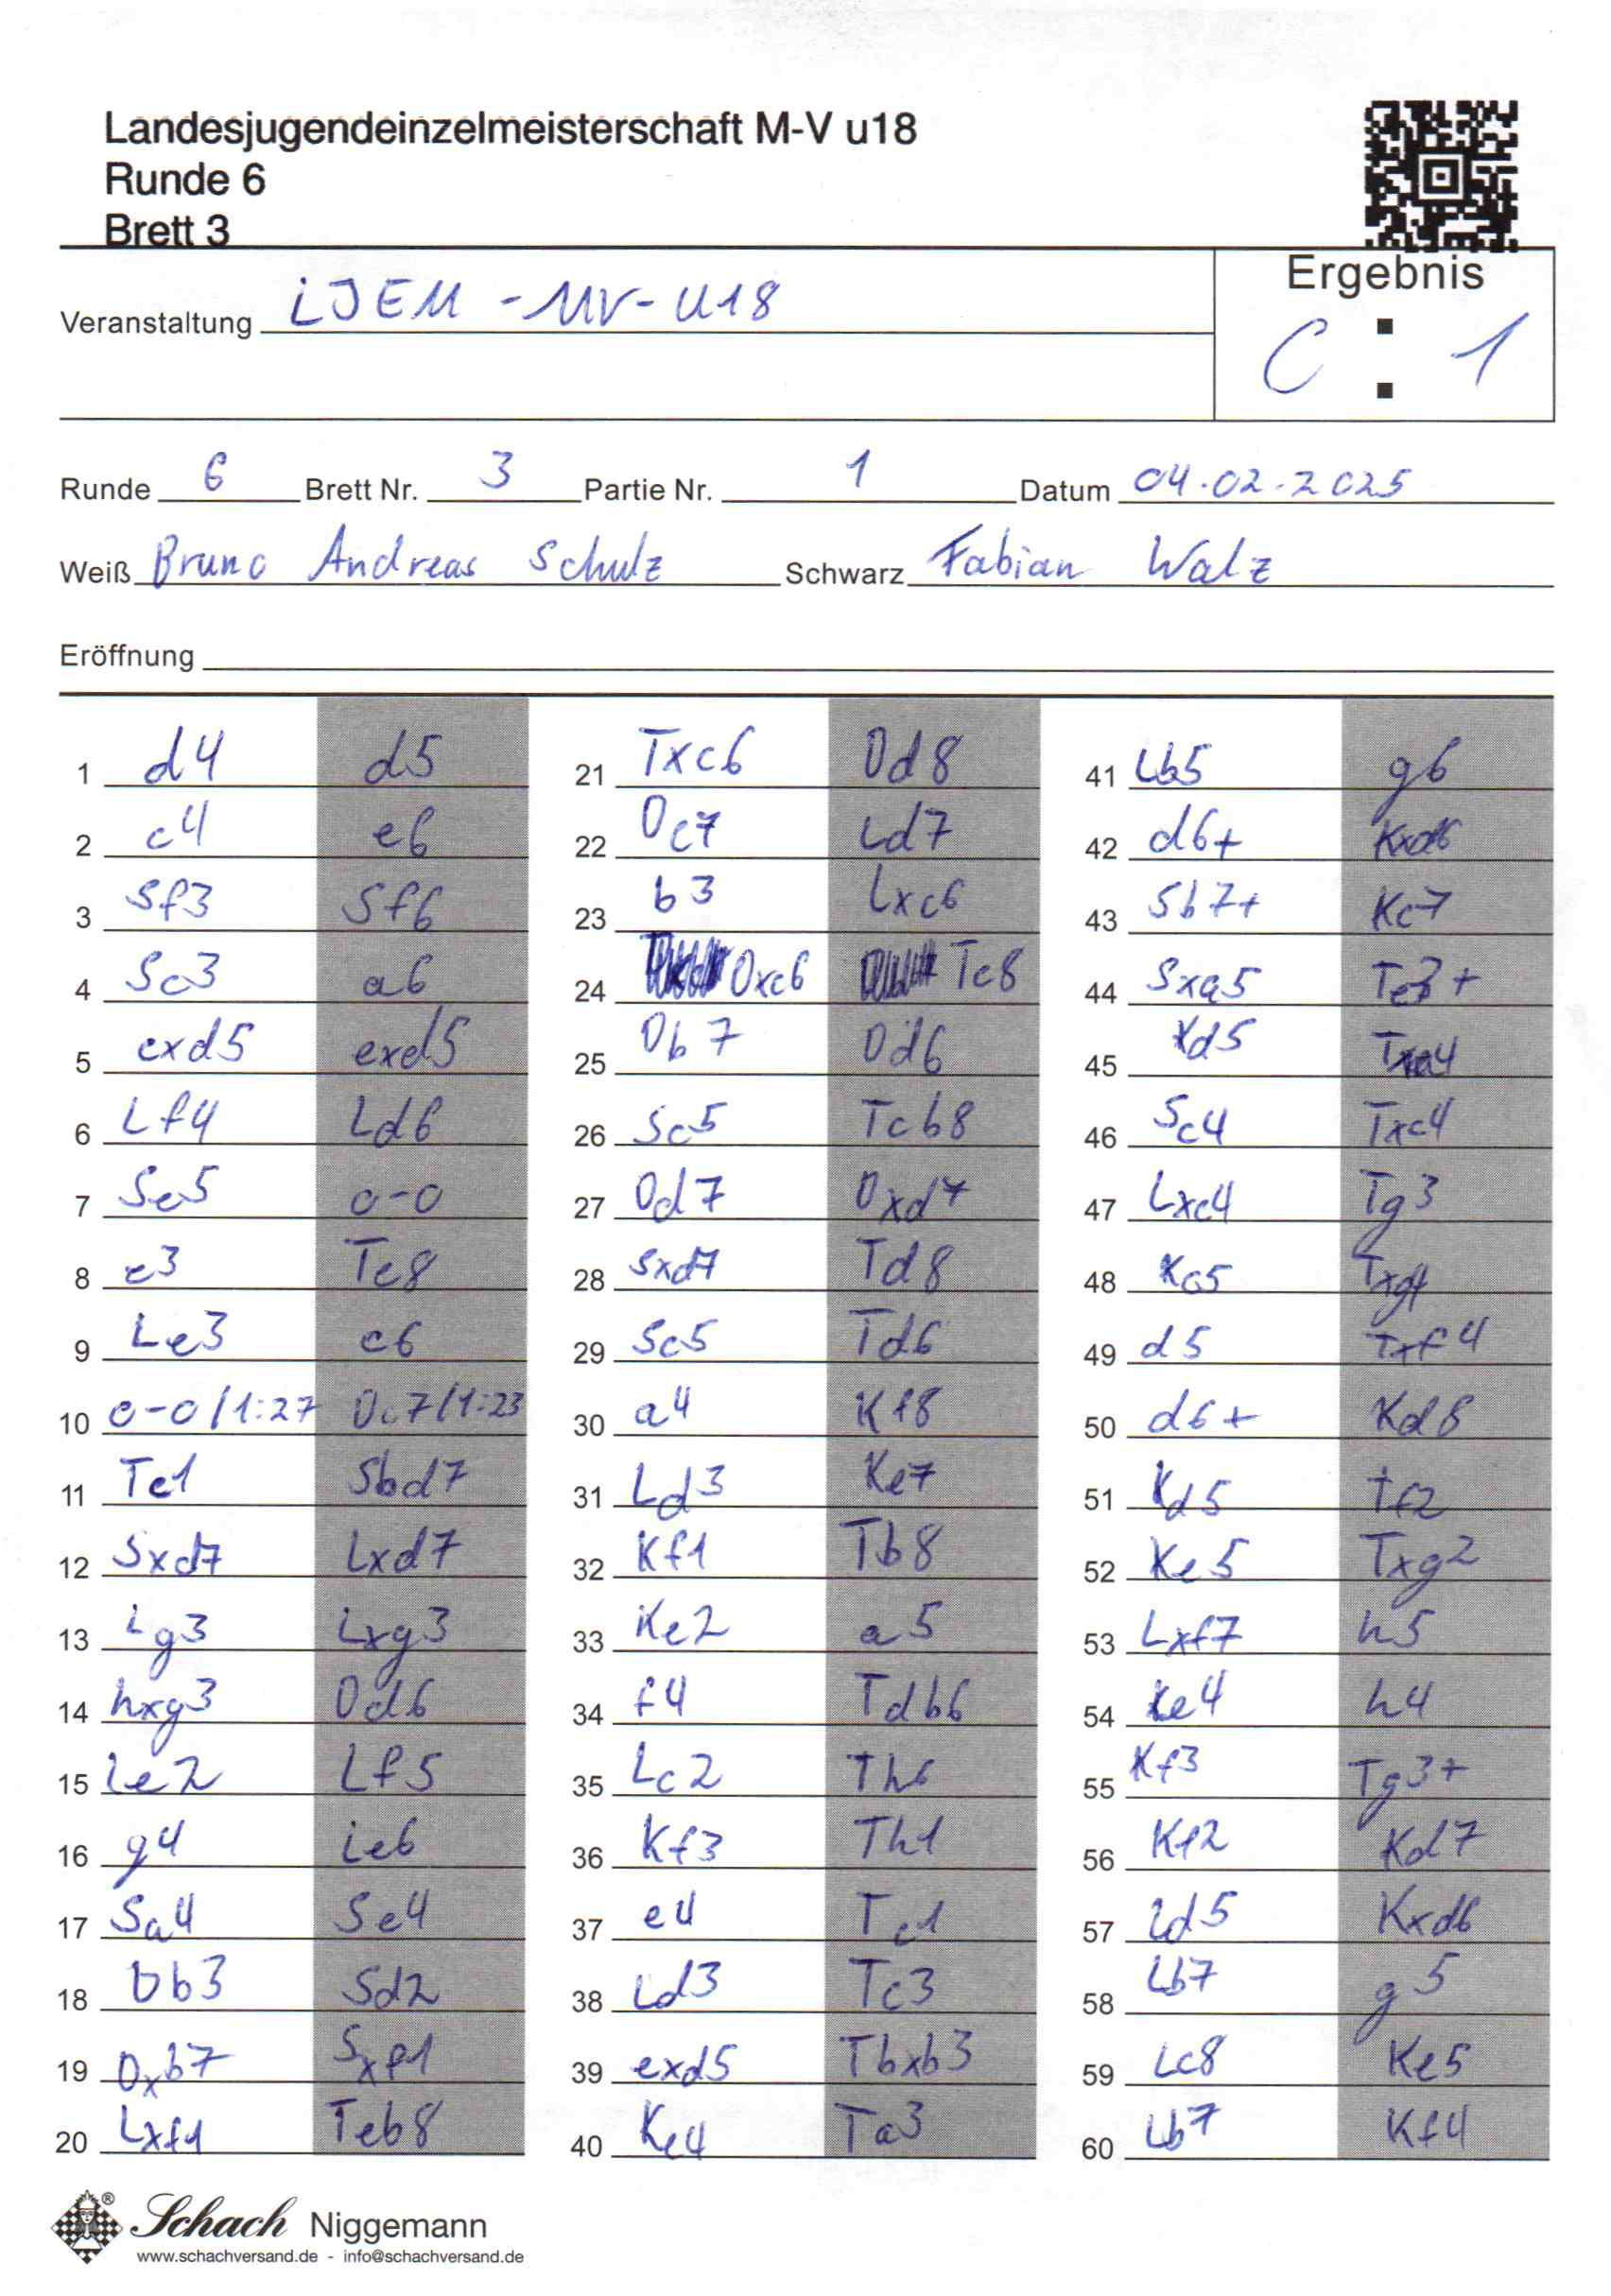 Landesjugendeinzelmeisterschaft M-V u18
Runde 6
Brett 3
Ergebnis
Veranstaltung LJEM - MV - U18
0 : 1
Runde 6 Brett Nr. 3 Partie Nr. 1 Datum 04.02.2025
Weiß Bruno Andreas Schulz Schwarz Fabian Walz
Eröffnung
1 d4 d5
2 c4 e6
3 Sf3 Sf6
4 Sc3 a6
5 cxd5 exd5
6 Lf4 Ld6
7 Se5 0-0
8 e3 Te8
9 Le3 c6
10 0-0/1:27 Dc7/1:23
11 Tc1 Sbd7
12 Sxd7 Lxd7
13 Lg3 Lxg3
14 hxg3 Dd6
15 Le2 Lf5
16 g4 Le6
17 Sa4 Se4
18 Db3 Sd2
19 Dxb7 Sxf1
20 Lxf1 Teb8
21 Txc6 Dd8
22 Dc7 Ld7
23 b3 Lxc6
24 Dxc6 Tc8
25 Db7 Dd6
26 Sc5 Tcb8
27 Dd7 Dxd7
28 Sxd7 Td8
29 Sc5 Td6
30 a4 Kf8
31 Ld3 Ke7
32 Kf1 Tb8
33 Ke2 a5
34 f4 Tdb6
35 Lc2 Th6
36 Kf3 Th1
37 e4 Tc1
38 Ld3 Tc3
39 exd5 Tbxb3
40 Ke4 Ta3
41 Lb5 g6
42 d6+ Kxd6
43 Sb7+ Kc7
44 Sxa5 Te3+
45 Kd5 Txa4
46 Sc4 Txc4
47 Lxc4 Tg3
48 Kc5 Txg4
49 d5 Txf4
50 d6+ Kd8
51 Kd5 Tf2
52 Ke5 Txg2
53 Lxf7 h5
54 Ke4 h4
55 Kf3 Tg3+
56 Kf2 Kd7
57 Ld5 Kxd6
58 Lb7 g5
59 Lc8 Ke5
60 Lb7 Kf4
Schach Niggemann
www.schachversand.de - info@schachversand.de